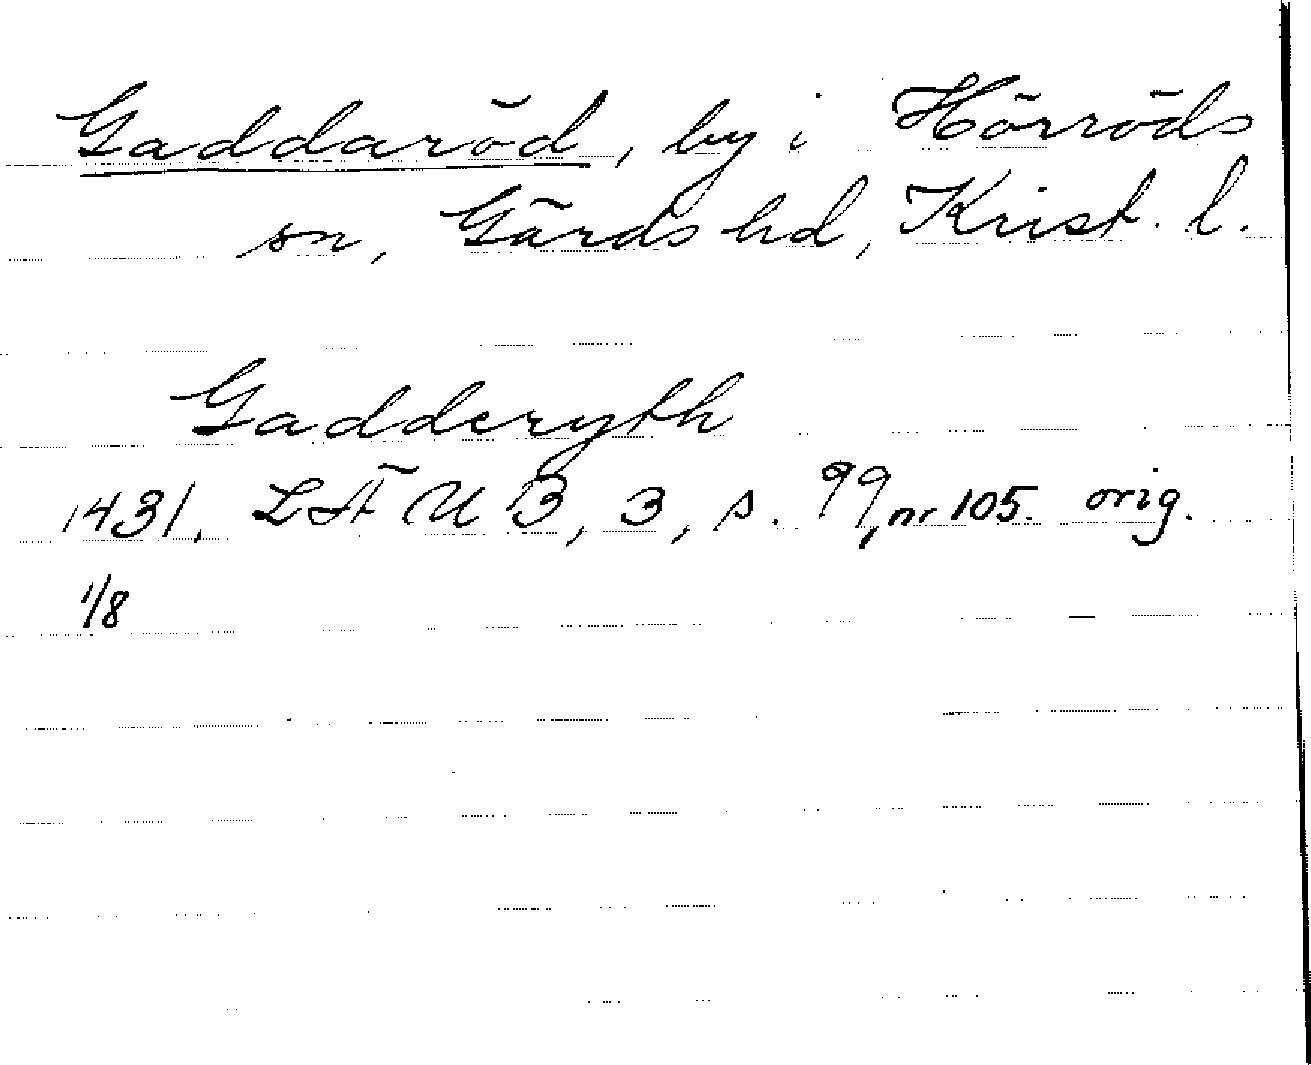 Gaddaröd, by i Hörröds
sn, Gärds hd, Krist. l.
Gadderyth
1431. LÄUB, 3, s. 99, nr 105. orig.
1/8